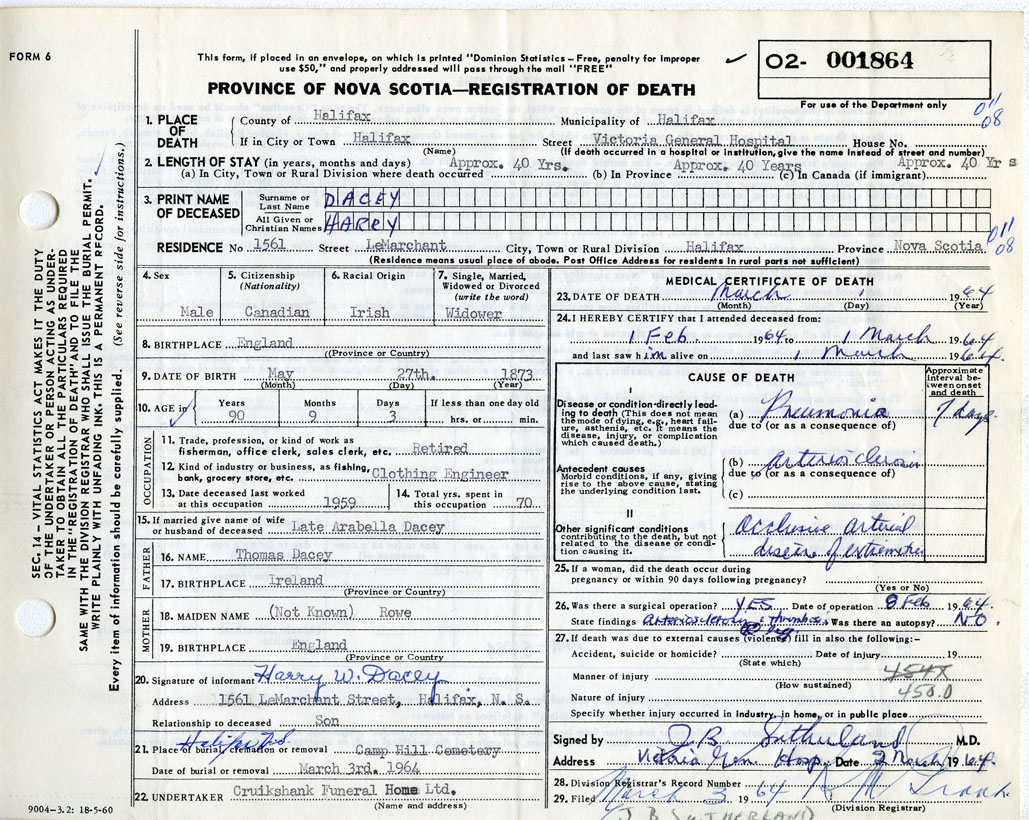 FORM 6
This form, if placed in an envelope, on which is printed "Dominion Statistics – Free, penalty for improper
use $50," and properly addressed will pass through the mail "FREE"
02- 001864
PROVINCE OF NOVA SCOTIA—REGISTRATION OF DEATH
For use of the Department only
011
08
1. PLACE OF DEATH
County of Halifax Municipality of Halifax
If in City or Town Halifax Street Victoria General Hospital House No.
(Name) (If death occurred in a hospital or institution, give the name instead of street and number)
2. LENGTH OF STAY (in years, months and days) Approx. 40 Yrs. Approx. 40 Years Approx. 40 Yrs
(a) In City, Town or Rural Division where death occurred (b) In Province (c) In Canada (if immigrant)
3. PRINT NAME OF DECEASED
Surname or Last Name DACEY
All Given or Christian Names HARRY
RESIDENCE No 1561 Street LeMarchant City, Town or Rural Division Halifax Province Nova Scotia
011
08
(Residence means usual place of abode. Post Office Address for residents in rural parts not sufficient)
4. Sex
Male
5. Citizenship
(Nationality)
Canadian
6. Racial Origin
Irish
7. Single, Married,
Widowed or Divorced
(write the word)
Widower
8. BIRTHPLACE England
(Province or Country)
9. DATE OF BIRTH May 27th. 1873
(Month) (Day) (Year)
10. AGE in Years Months Days If less than one day old
90 9 3 hrs. or min.
OCCUPATION
11. Trade, profession, or kind of work as
fisherman, office clerk, sales clerk, etc. Retired
12. Kind of industry or business, as fishing,
bank, grocery store, etc. Clothing Engineer
13. Date deceased last worked
at this occupation 1959
14. Total yrs. spent in
this occupation 70
15. If married give name of wife
or husband of deceased Late Arabella Dacey
FATHER
16. NAME Thomas Dacey
17. BIRTHPLACE Ireland
(Province or Country)
MOTHER
18. MAIDEN NAME (Not Known) Rowe
19. BIRTHPLACE England
(Province or Country
20. Signature of informant Harry W. Dacey
Address 1561 LeMarchant Street, Halifax, N. S.
Relationship to deceased Son
Halifax NS
21. Place of burial, cremation or removal Camp Hill Cemetery
Date of burial or removal March 3rd. 1964
22. UNDERTAKER Cruikshank Funeral Home Ltd.
(Name and address)
9004-3.2: 18-5-60
MEDICAL CERTIFICATE OF DEATH
23. DATE OF DEATH March 1 1964
(Month) (Day) (Year)
24. I HEREBY CERTIFY that I attended deceased from:
1 Feb 1964 to 1 March 1964
and last saw him alive on 1 March 1964.
CAUSE OF DEATH
Approximate
interval be-
tween onset
and death
I
Disease or condition directly lead-
ing to death (This does not mean
the mode of dying, e.g., heart fail-
ure, asthenia, etc. It means the
disease, injury, or complication
which caused death.)
(a) Pneumonia 7 days
due to (or as a consequence of)
Antecedent causes
Morbid conditions, if any, giving
rise to the above cause, stating
the underlying condition last.
(b) arteriosclerosis
due to (or as a consequence of)
(c)
II
Other significant conditions
contributing to the death, but not
related to the disease or condi-
tion causing it.
Occlusive arterial
disease of extremities
25. If a woman, did the death occur during
pregnancy or within 90 days following pregnancy?
(Yes or No)
26. Was there a surgical operation? YES Date of operation 8 Feb 1964.
State findings Arteriosclerosis & thrombosis Was there an autopsy? NO.
27. If death was due to external causes (violence) fill in also the following:–
Accident, suicide or homicide? Date of injury 19
(State which)
Manner of injury
(How sustained)
450.0
Nature of injury
Specify whether injury occurred in industry, in home, or in public place
Signed by J.B Sutherland M.D.
Address Victoria Gen Hosp. Date 2 March 1964.
28. Division Registrar's Record Number
29. Filed March 3 1964
(Division Registrar)
J B SUTHERLAND
SEC. 14 – VITAL STATISTICS ACT MAKES IT THE DUTY
OF THE UNDERTAKER OR PERSON ACTING AS UNDER-
TAKER TO OBTAIN ALL THE PARTICULARS REQUIRED
IN THE "REGISTRATION OF DEATH" AND TO FILE THE
SAME WITH THE DIVISION REGISTRAR WHO SHALL ISSUE THE BURIAL PERMIT.
WRITE PLAINLY WITH UNFADING INK. THIS IS A PERMANENT RECORD.
Every item of information should be carefully supplied. (See reverse side for instructions.)